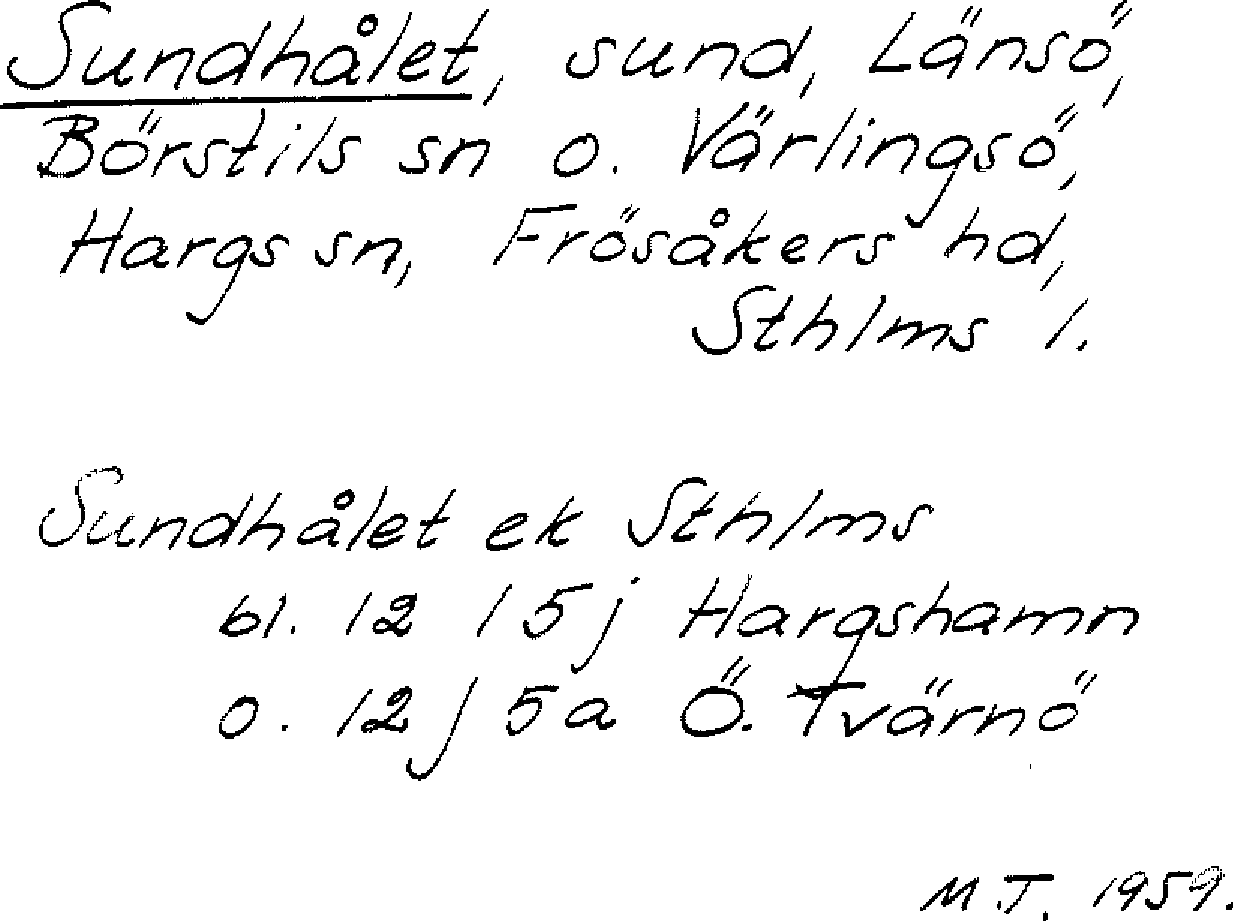 Sundhålet, sund, Länsö,
Börstils sn o. Värlingsö,
Hargs sn, Frösåkers hd,
Sthlms l.
Sundhålet ek Sthlms
bl. 12 I 5j Hargshamn
o. 12 J 5a Ö. Tvärnö
M.T. 1959.